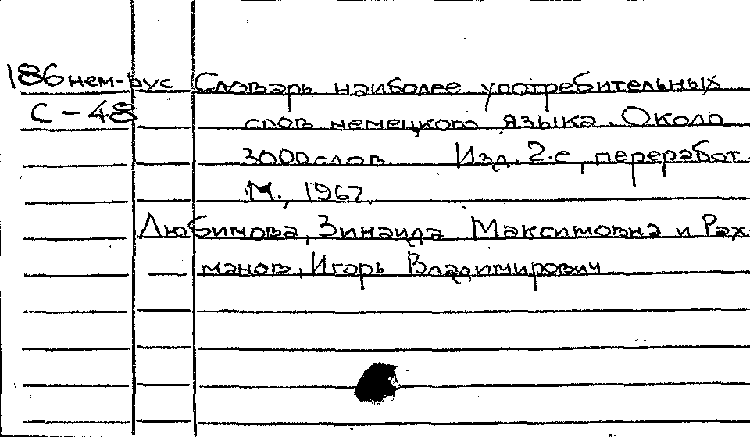 186нем-рус Словарь наиболее употребительных
С-48 слов немецкого языка. Около
3000слов Изд. 2-е, переработ.
М., 1967.
Любимова, Зинаида Максимовна и Рах-
манов, Игорь Владимирович